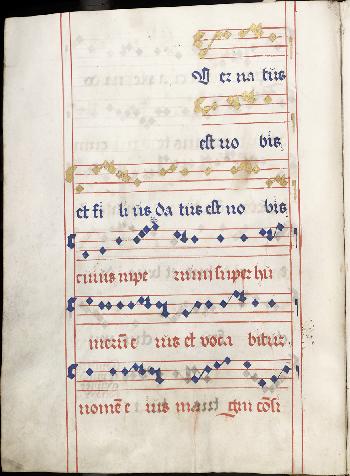 U er na tus
est no bis
et fi li us da tus est no bis
cuius impe rium super hu
merum e ius et voca bitur
nomē e ius ma gni cōsi